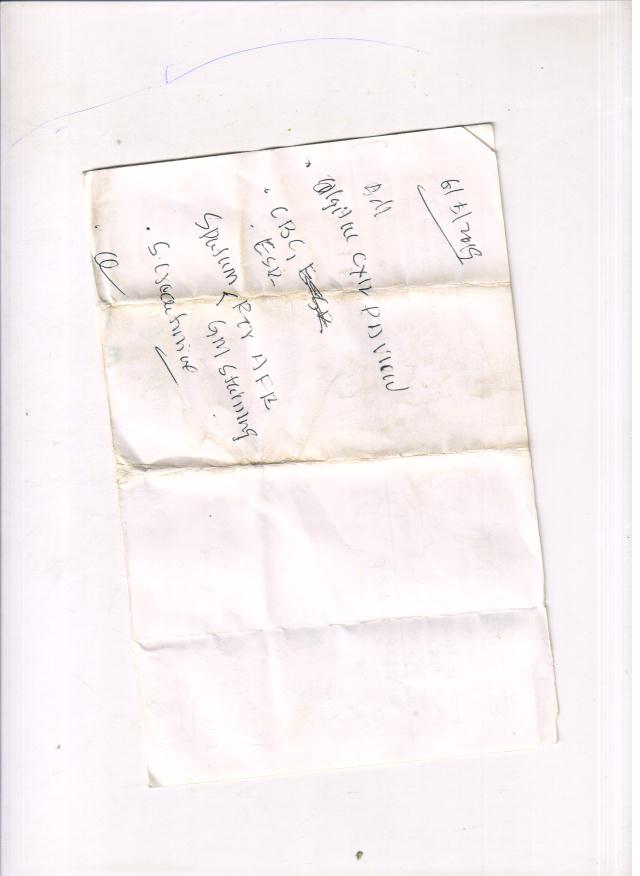 Adv
Digital CXR P/A View
CBC
ESR
Sputum for AFB
Gm staining
S. Creatinine